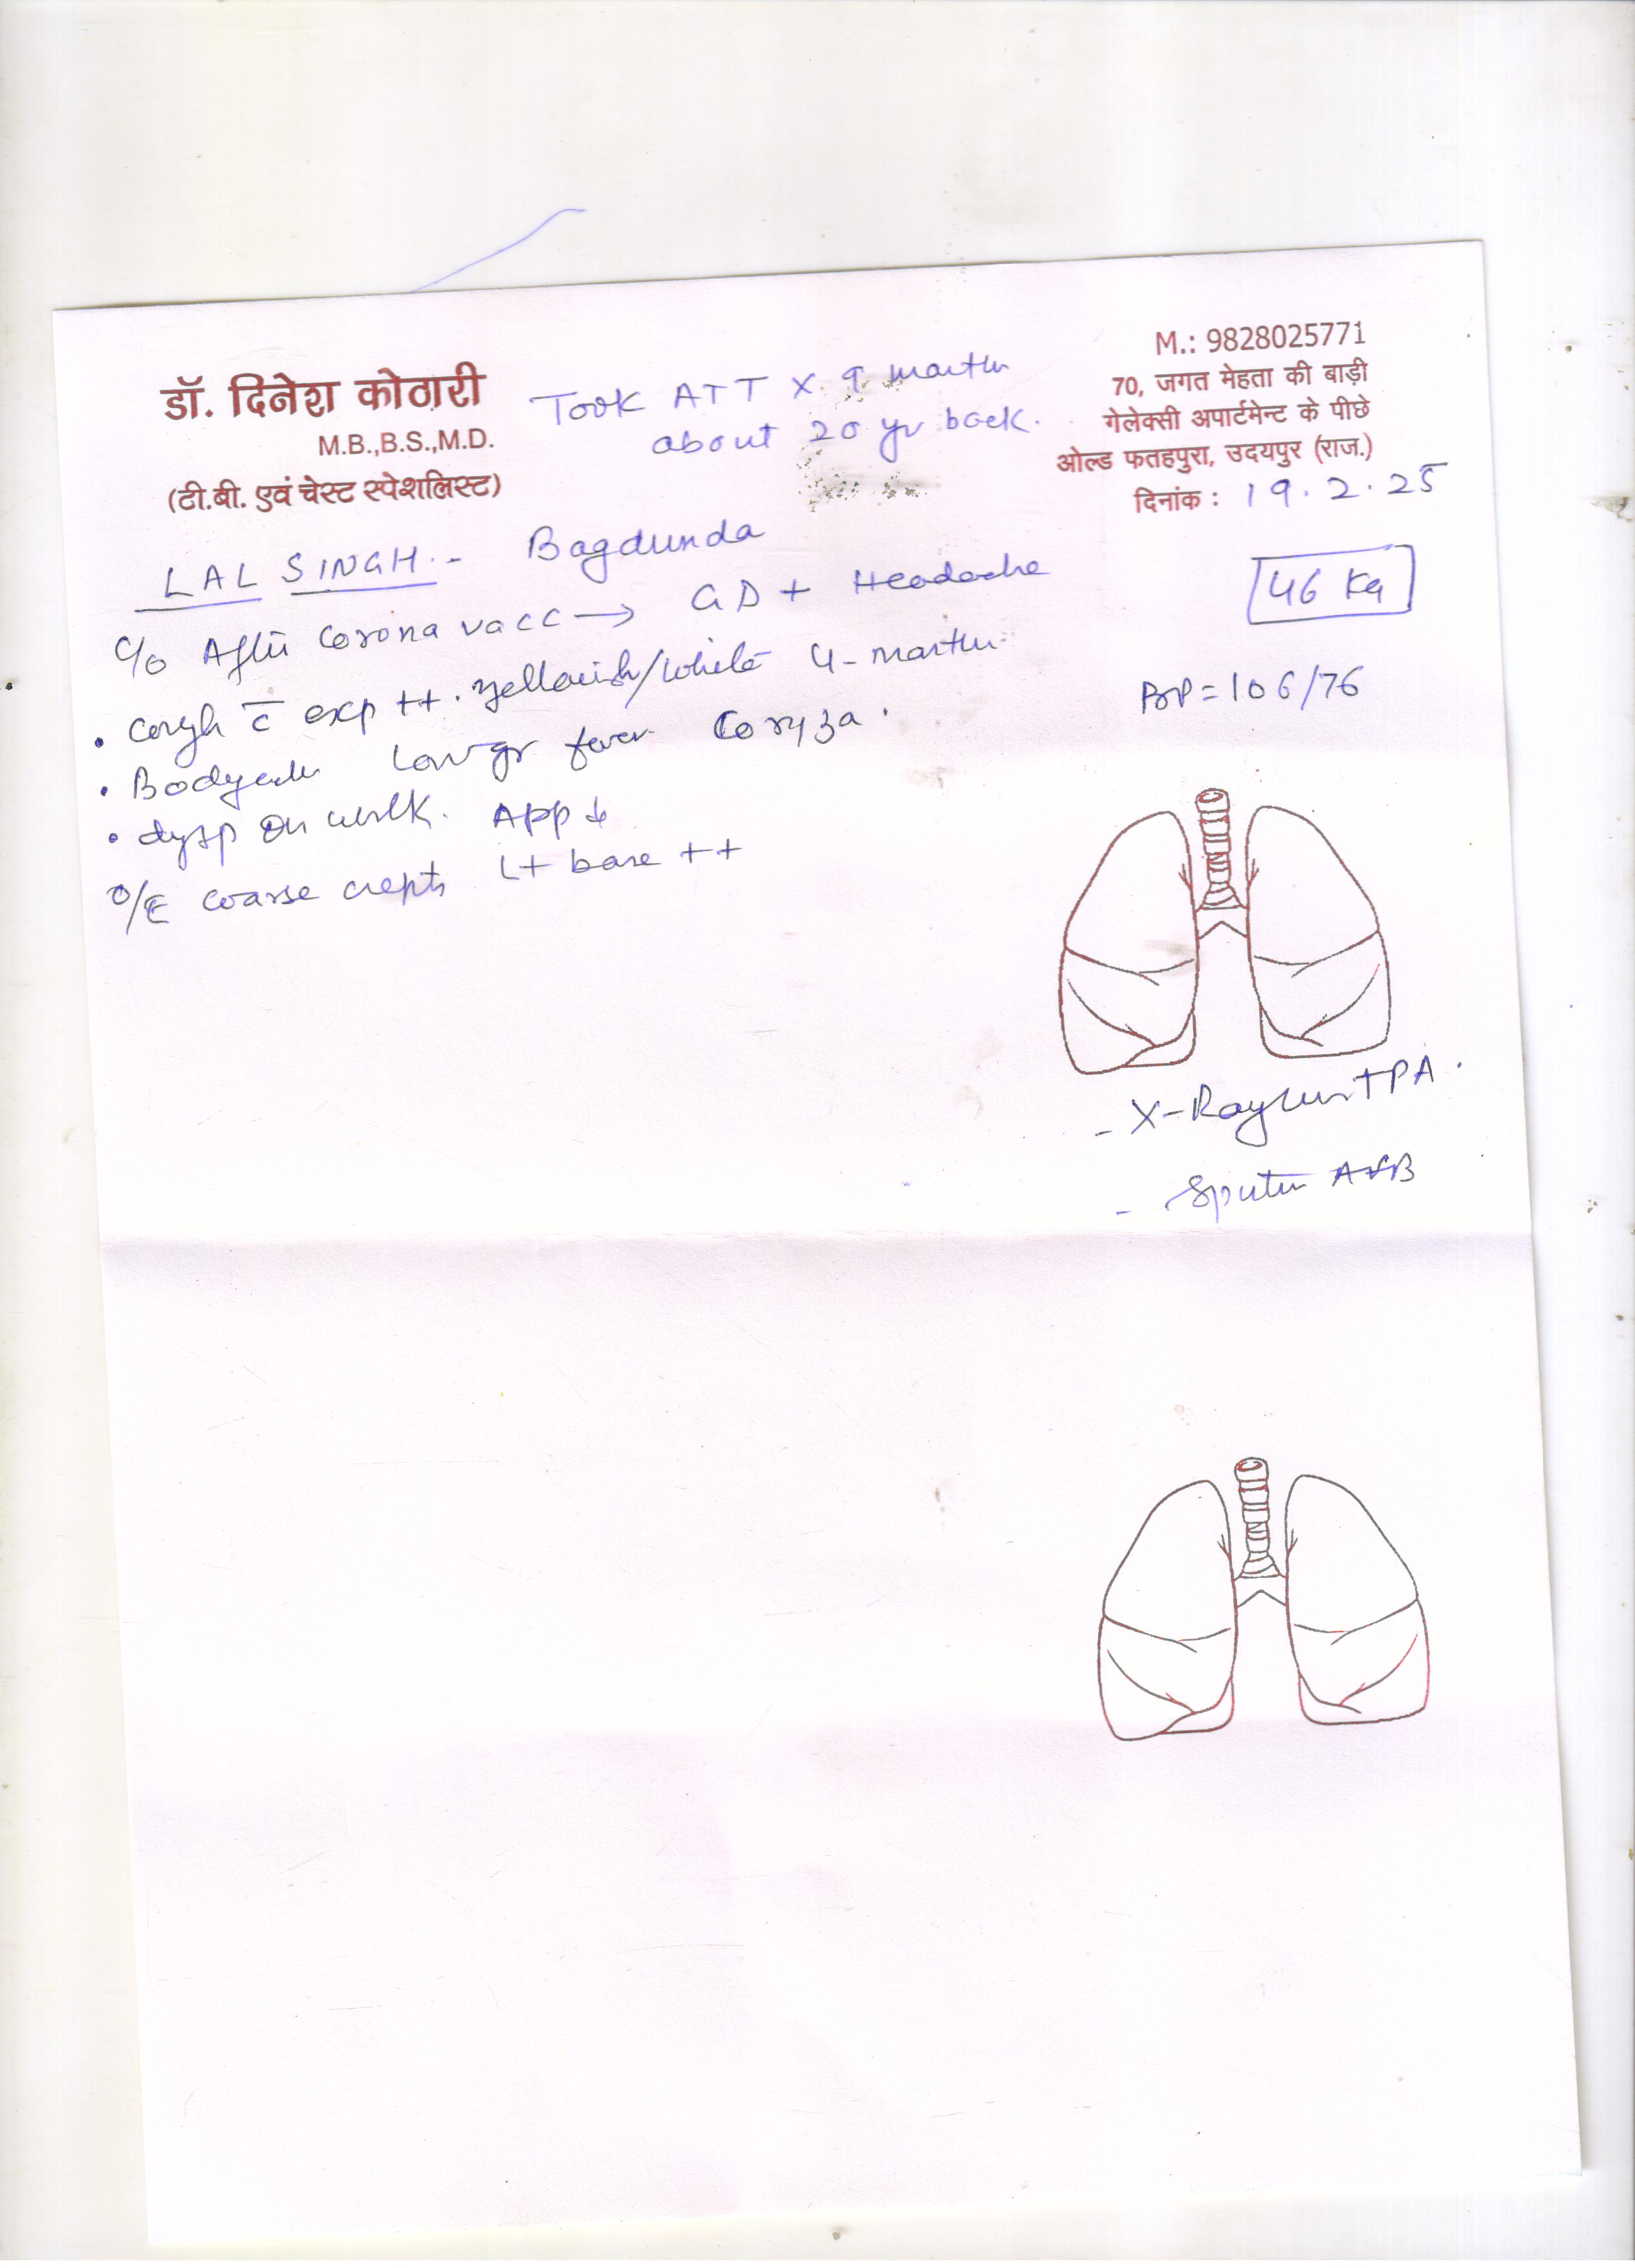 डॉ. दिनेश कोठारी
M.B.,B.S.,M.D.
(टी.बी. एवं चेस्ट स्पेशलिस्ट)
Took ATT X 9 month
about 20 yr back.
M.: 9828025771
70, जगत मेहता की बाड़ी
गेलेक्सी अपार्टमेन्ट के पीछे
ओल्ड फतहपुरा, उदयपुर (राज.)
दिनांक : 19.2.25
LAL SINGH. - Bagdunda
46 Kg
C/o After Corona vacc → GD + Headache
• Cough c̄ exp ++. yellowish/white 4-month
BP = 106/76
• Bodyache Low gr fever. Coryza.
• dysp on walk. App ↓
O/E coarse crepts Lt base ++
- X-Ray chest PA.
- Sputum AFB